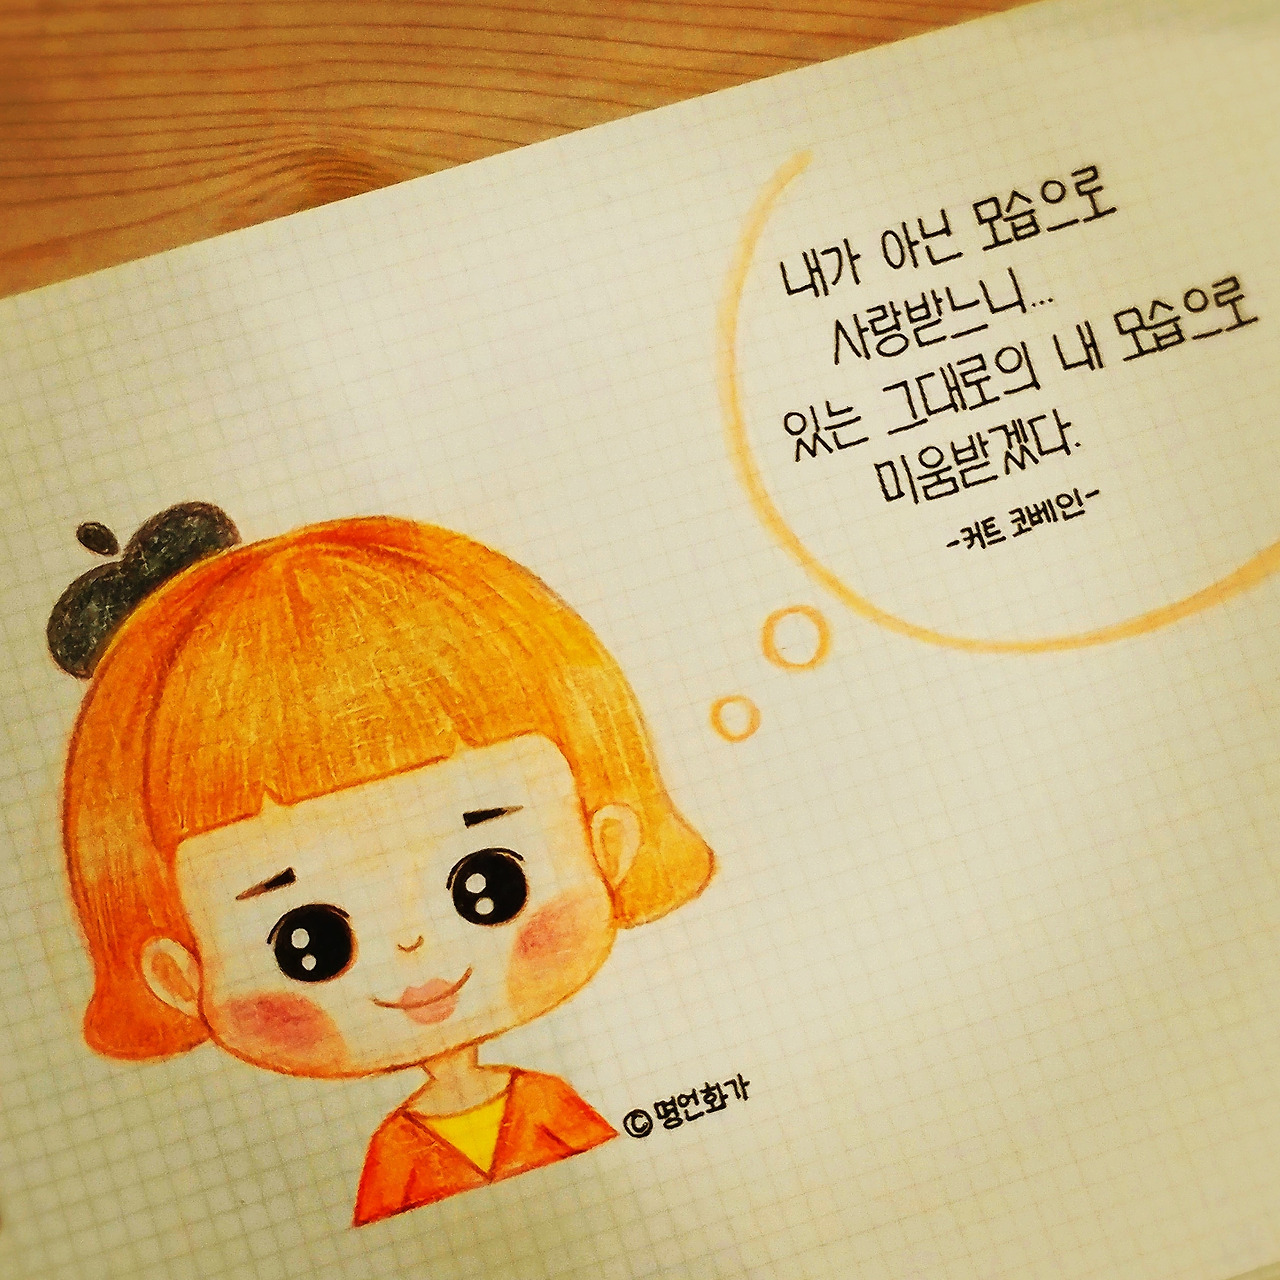 내가 아닌 모습으로
사랑받느니...
있는 그대로의 내 모습으로
미움받겠다.
-커트 코베인-
©명언화가